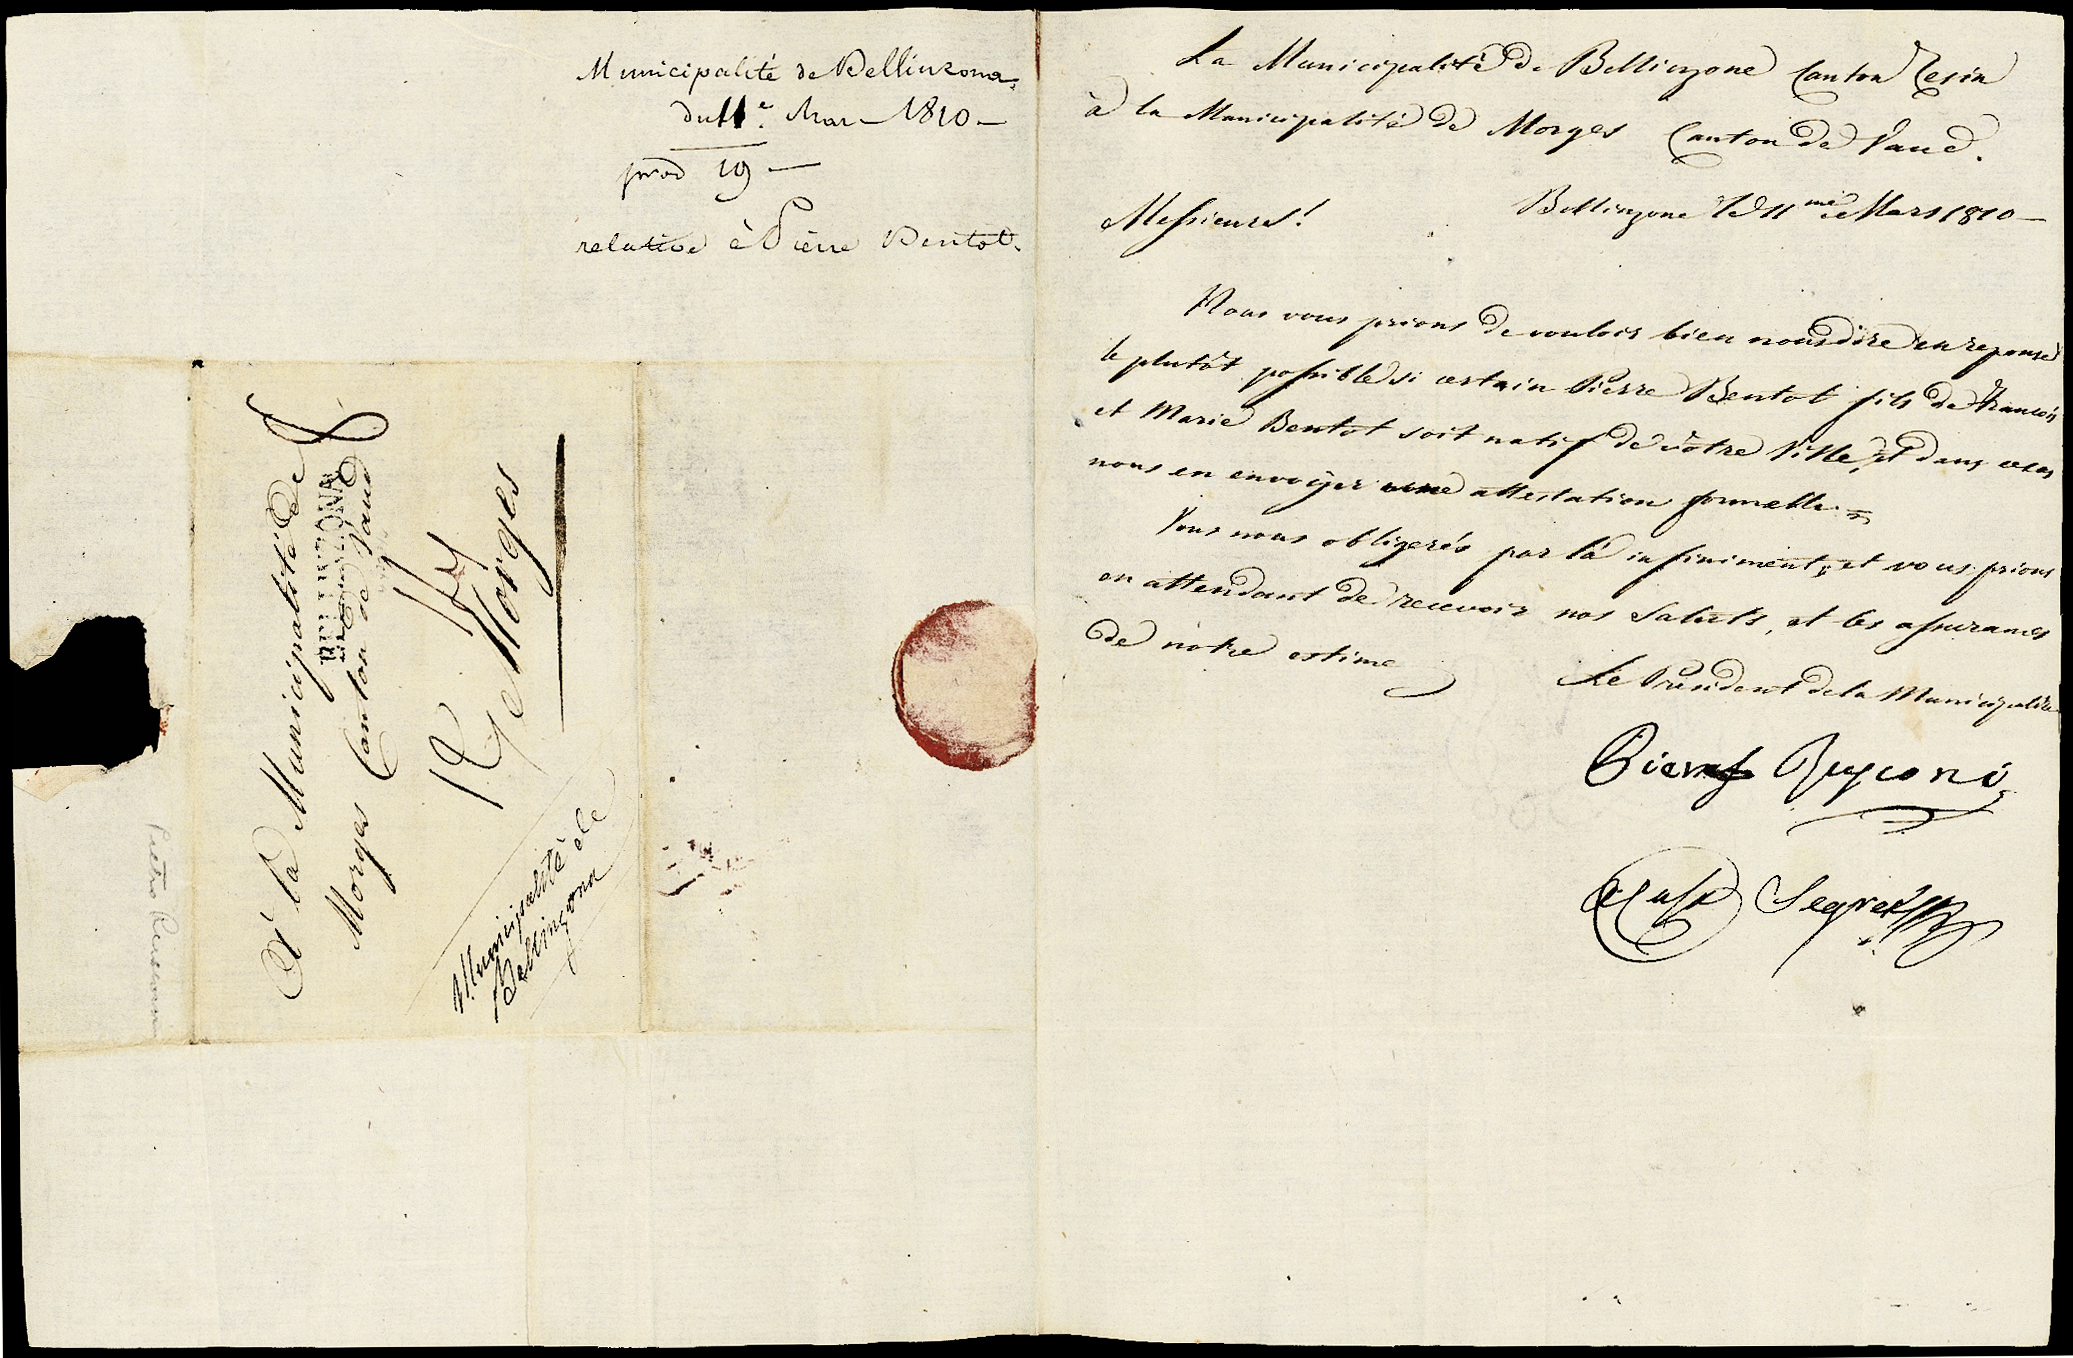 Municipalité de Bellinzona.
du 11e. Mars 1810 —
prod 19 —
relative à Pierre Bentot.
A la Municipalité de
BELLINZONA
Morges Canton de Vaud
Morges
Municipalité de
Bellinzona
La Municipalité de Bellinzone Canton Tesin
à la Municipalité de Morges Canton de Vaud.
Bellinzone le 11me Mars 1810 —
Messieurs!
Nous vous prions de vouloir bien nous dire en reponse
le plutôt possible si certain Pierre Bentot fils de François
et Marie Bentot soit natif de vôtre Ville, et dans ce cas
nous en envoyer une attestation formelle.
Vous nous obligerés par là infiniment, et vous prions
en attendant de recevoir nos Saluts, et les assurances
de notre estime
Le Président de la Municipalité
Rusconi
Segret